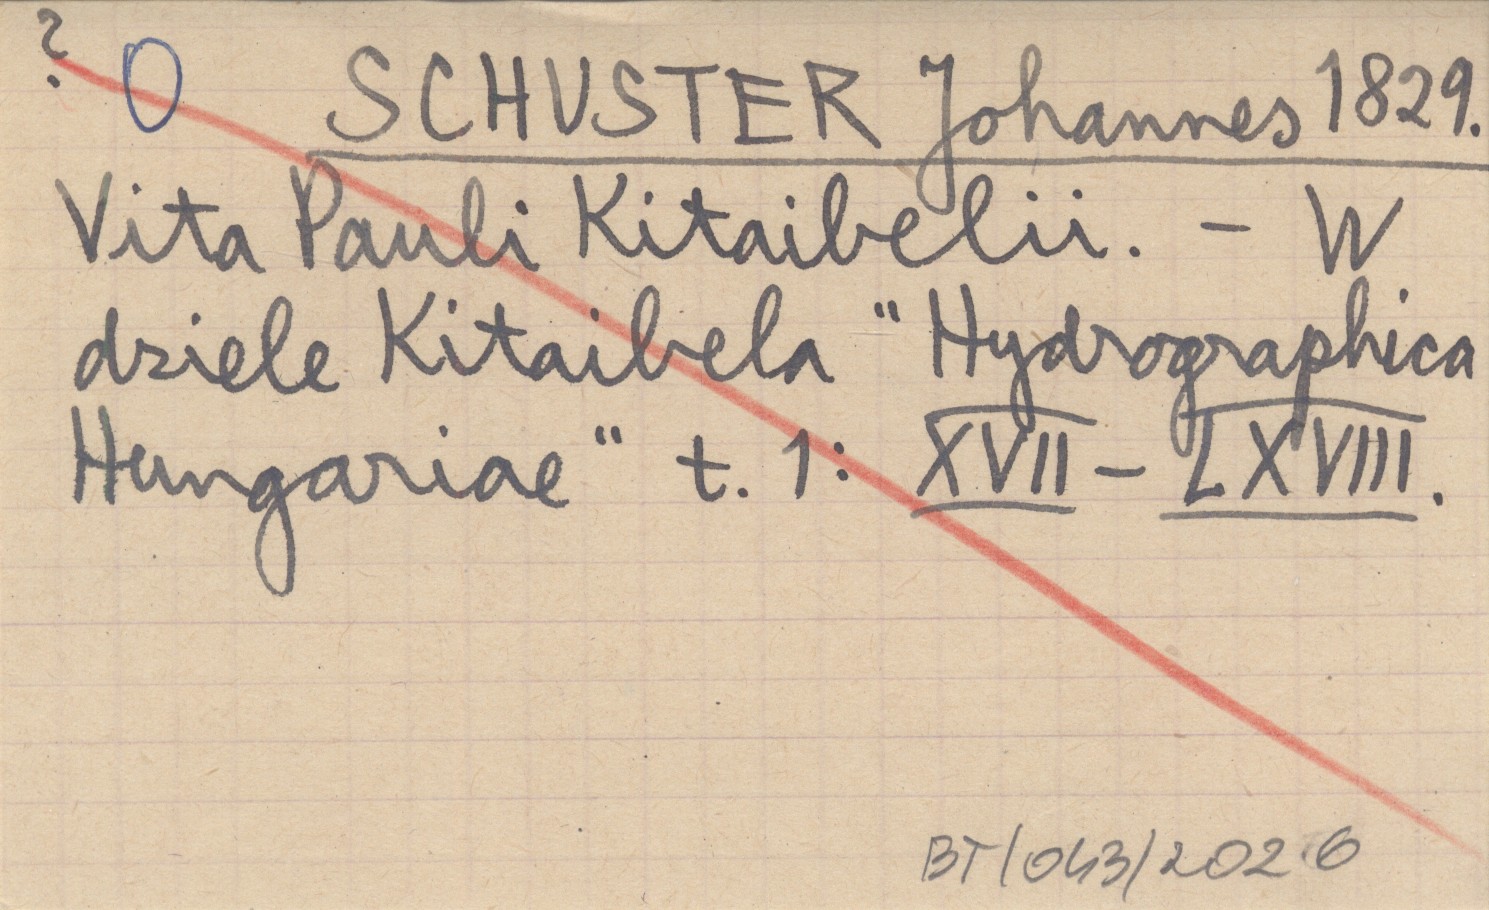 ? O SCHUSTER Johannes 1829.
Vita Pauli Kitaibelii. - W
dziele Kitaibela "Hydrographica
Hungariae" t. 1: XVII - LXVIII.
BT/043/2026